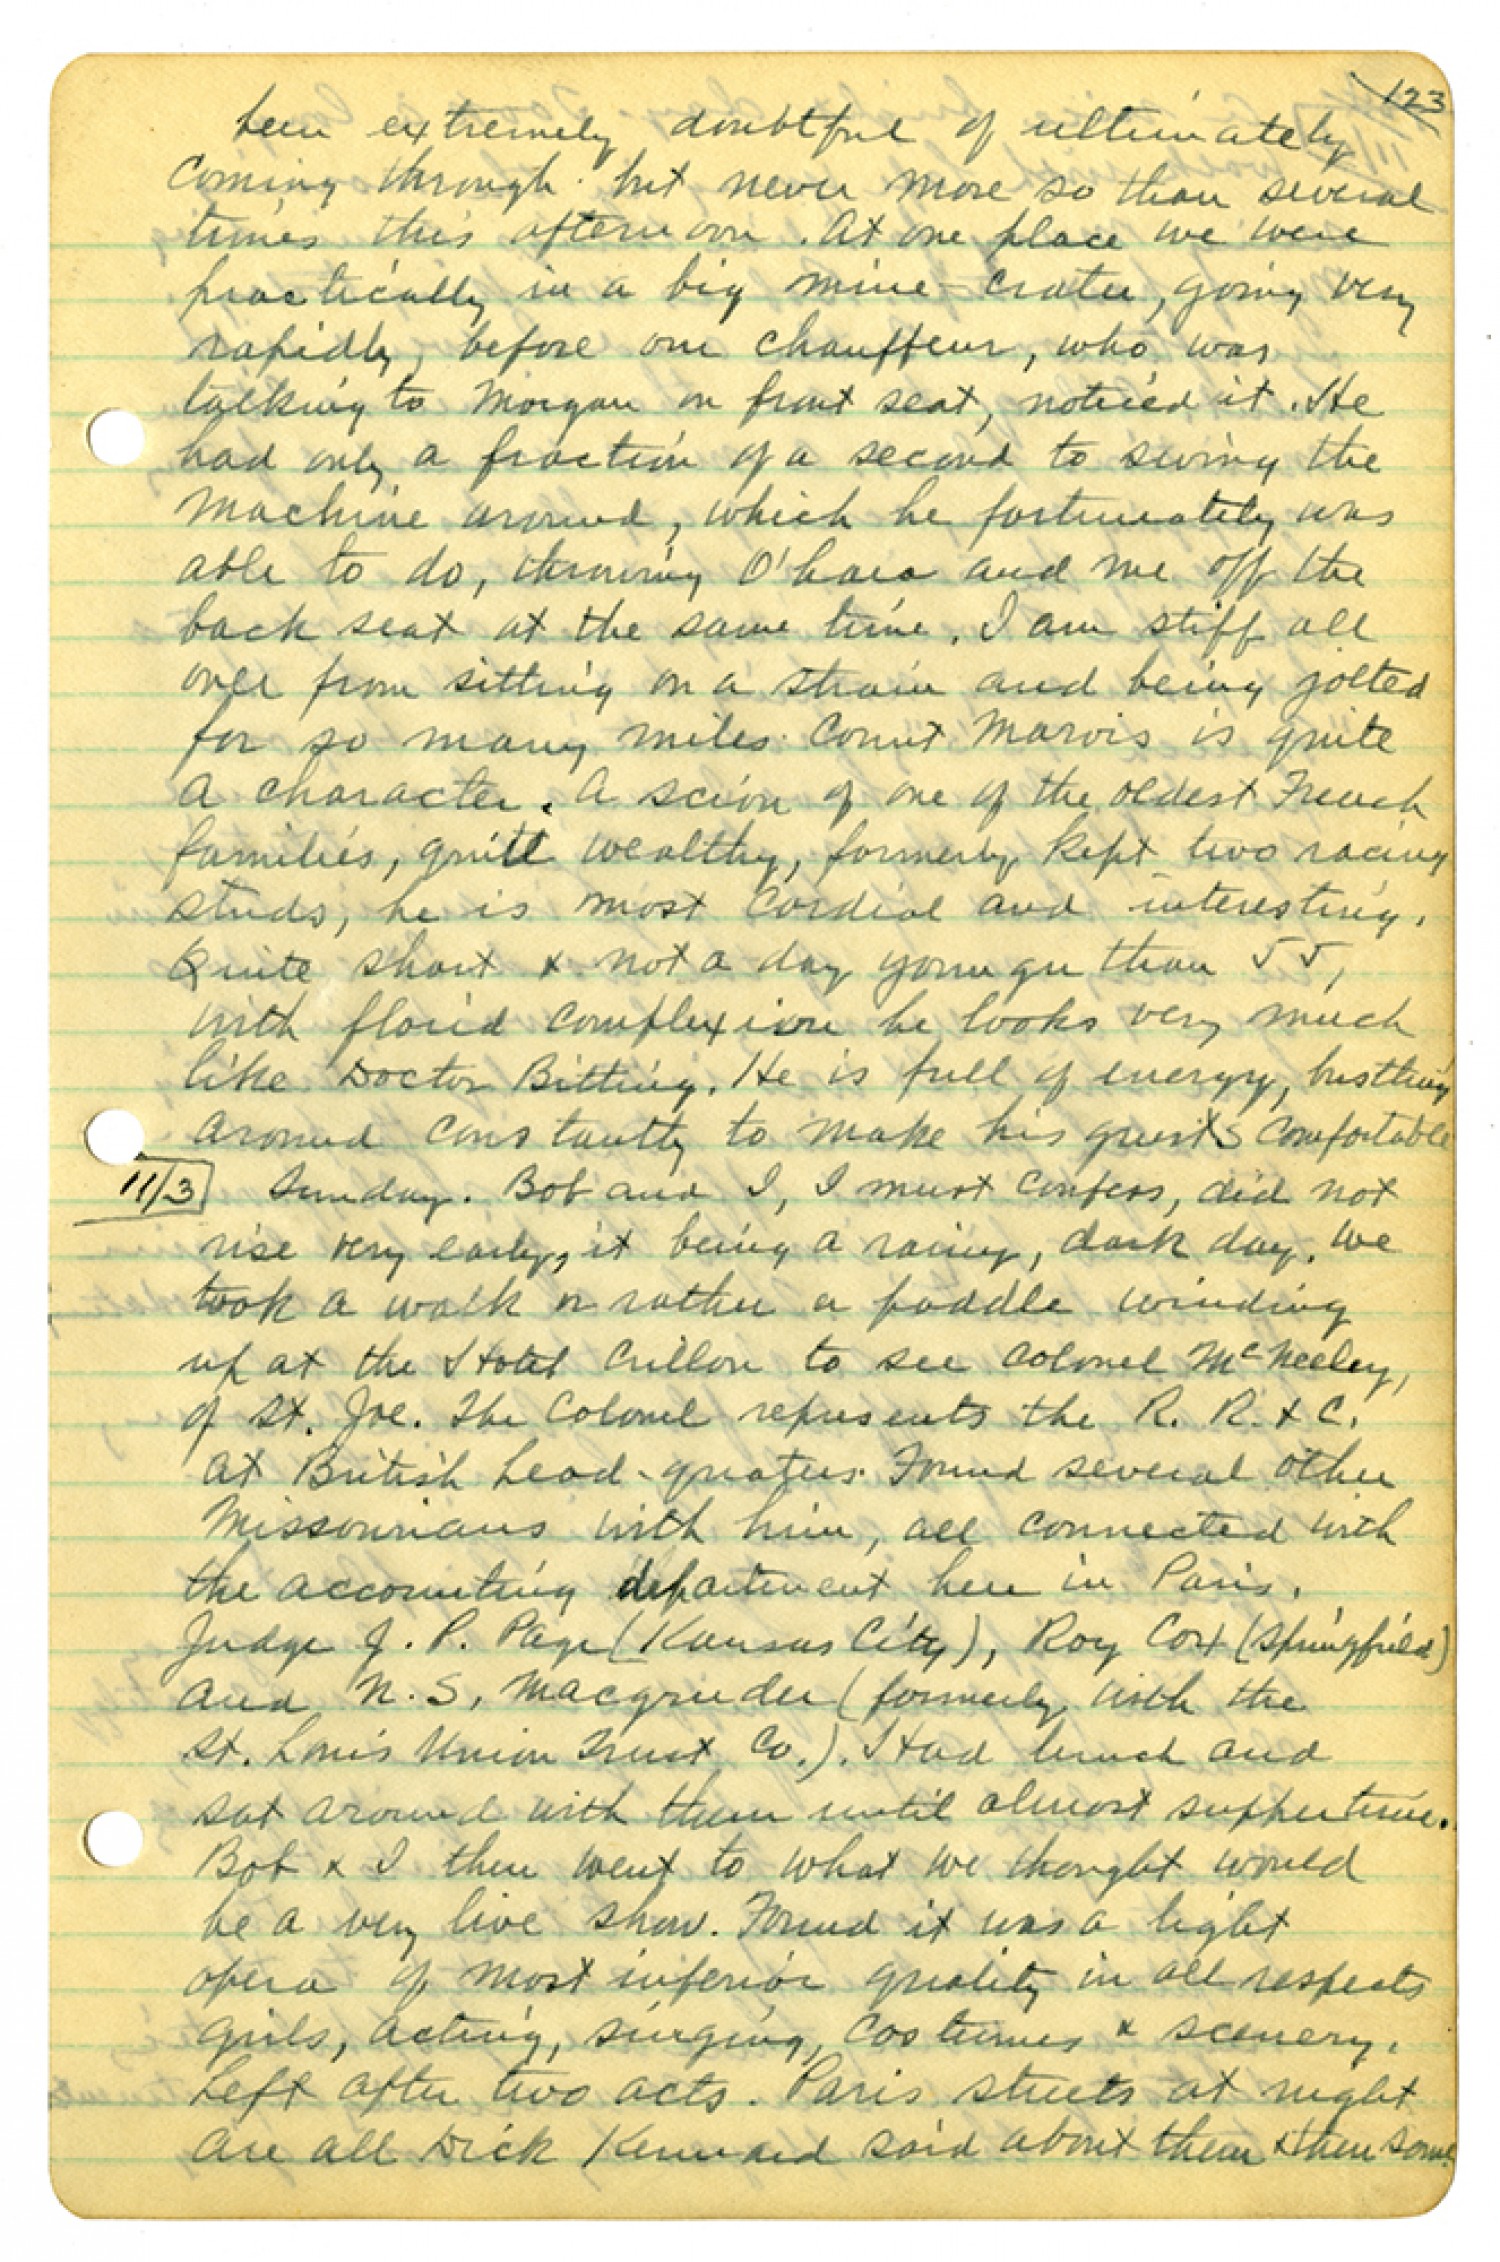 123
been extremely doubtful of ultimately
coming through but never more so than several
times this afternoon. At one place we were
practically in a big mine-crater, going very
rapidly, before our chauffeur, who was
talking to Morgan on front seat, noticed it. He
had only a fraction of a second to swing the
machine around, which he fortunately was
able to do, throwing O'hara and me off the
back seat at the same time. I am stiff all
over from sitting on a strain and being jolted
for so many miles. Count Marois is quite
a character. A scion of one of the oldest French
families, quite wealthy, formerly kept two racing
studs, he is most cordial and interesting.
Quite short & not a day younger than 55,
with florid complexion he looks very much
like Doctor Bitting. He is full of energy, bustling
around constantly to make his guests comfortable
11/3 Sunday. Bob and I, I must confess, did not
rise very early, it being a rainy, dark day. We
took a walk or rather a paddle winding
up at the Hotel Crillon to see Colonel McNeeley,
of St. Joe. The Colonel represents the R. R. & C.
at British head-quaters. Found several other
Missourians with him, all connected with
the accounting department here in Paris.
Judge J. P. Page (Kansas City), Roy Cox (Springfield)
and N. S. Macgruder (formerly with the
St. Louis Union Trust Co.). Had lunch and
sat around with them until almost supper time.
Bob & I then went to what we thought would
be a very live show. Found it was a light
opera of most inferior quality in all respects
girls, acting, singing, costumes & scenery.
Left after two acts. Paris streets at night
are all Dick Kennard said about them & then some